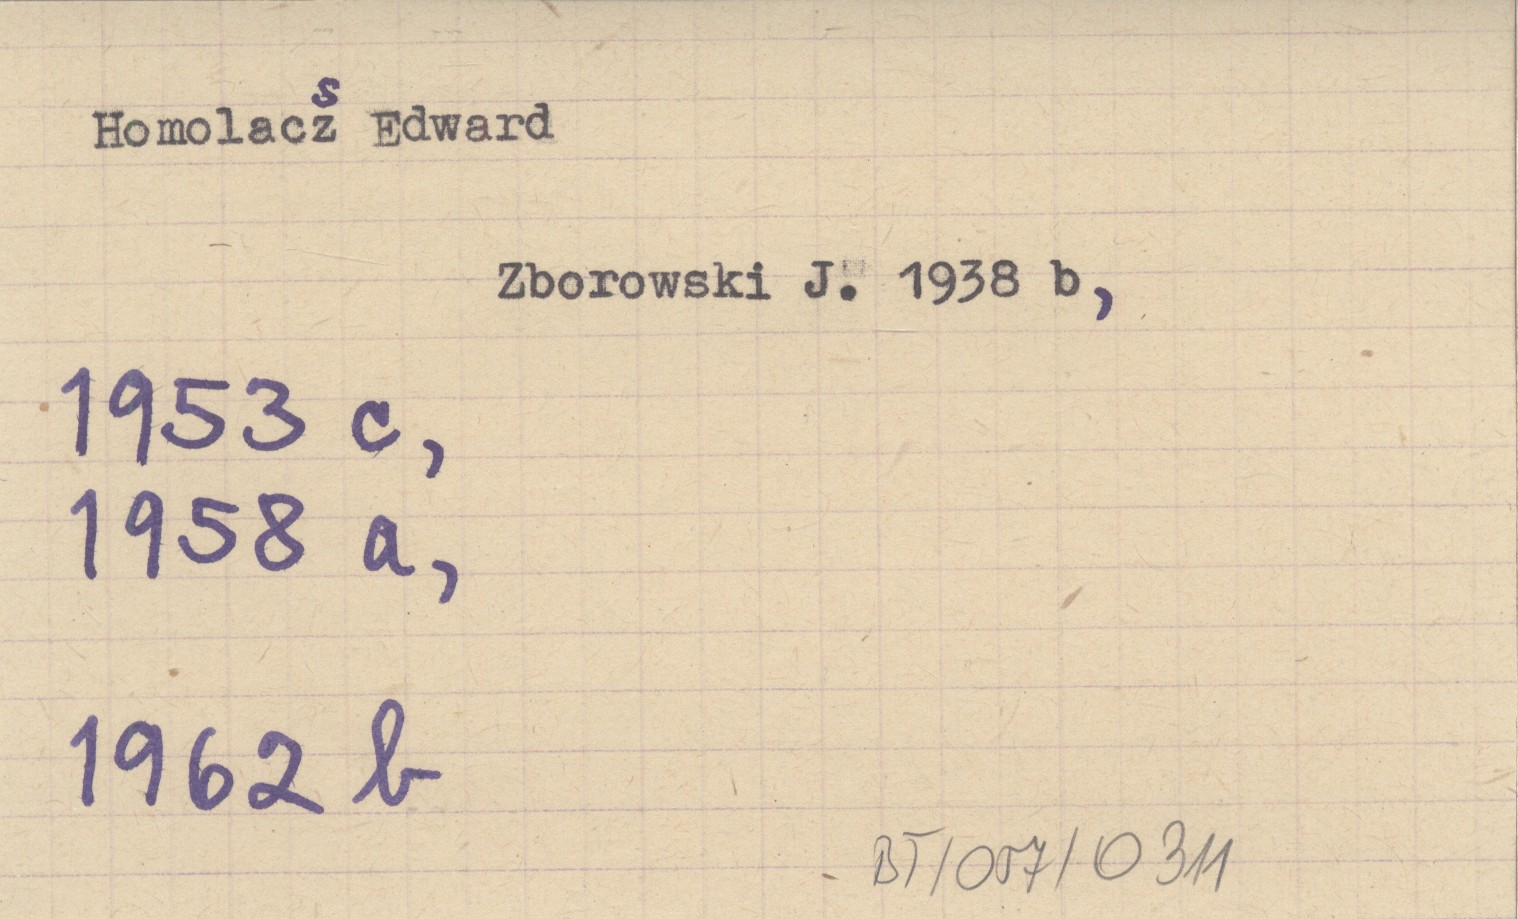 Homolacsz Edward
Zborowski J. 1938 b,
1953 c,
1958 a,
1962 b
BT/057/0311